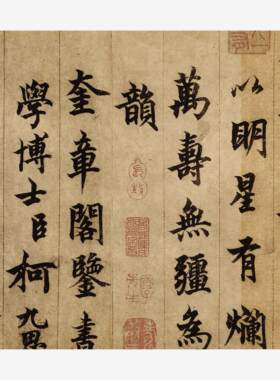 以明星有爛
萬壽無疆為
韻
奎章閣鑒書
學博士臣柯九思